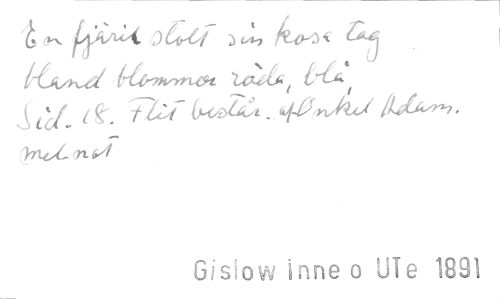 En fjäril stolt sin kosa tag
bland blommor röda, blå,
Sid. 18. Flit består. af Onkel Adam.
mel. not
Gislow inne o UTe 1891